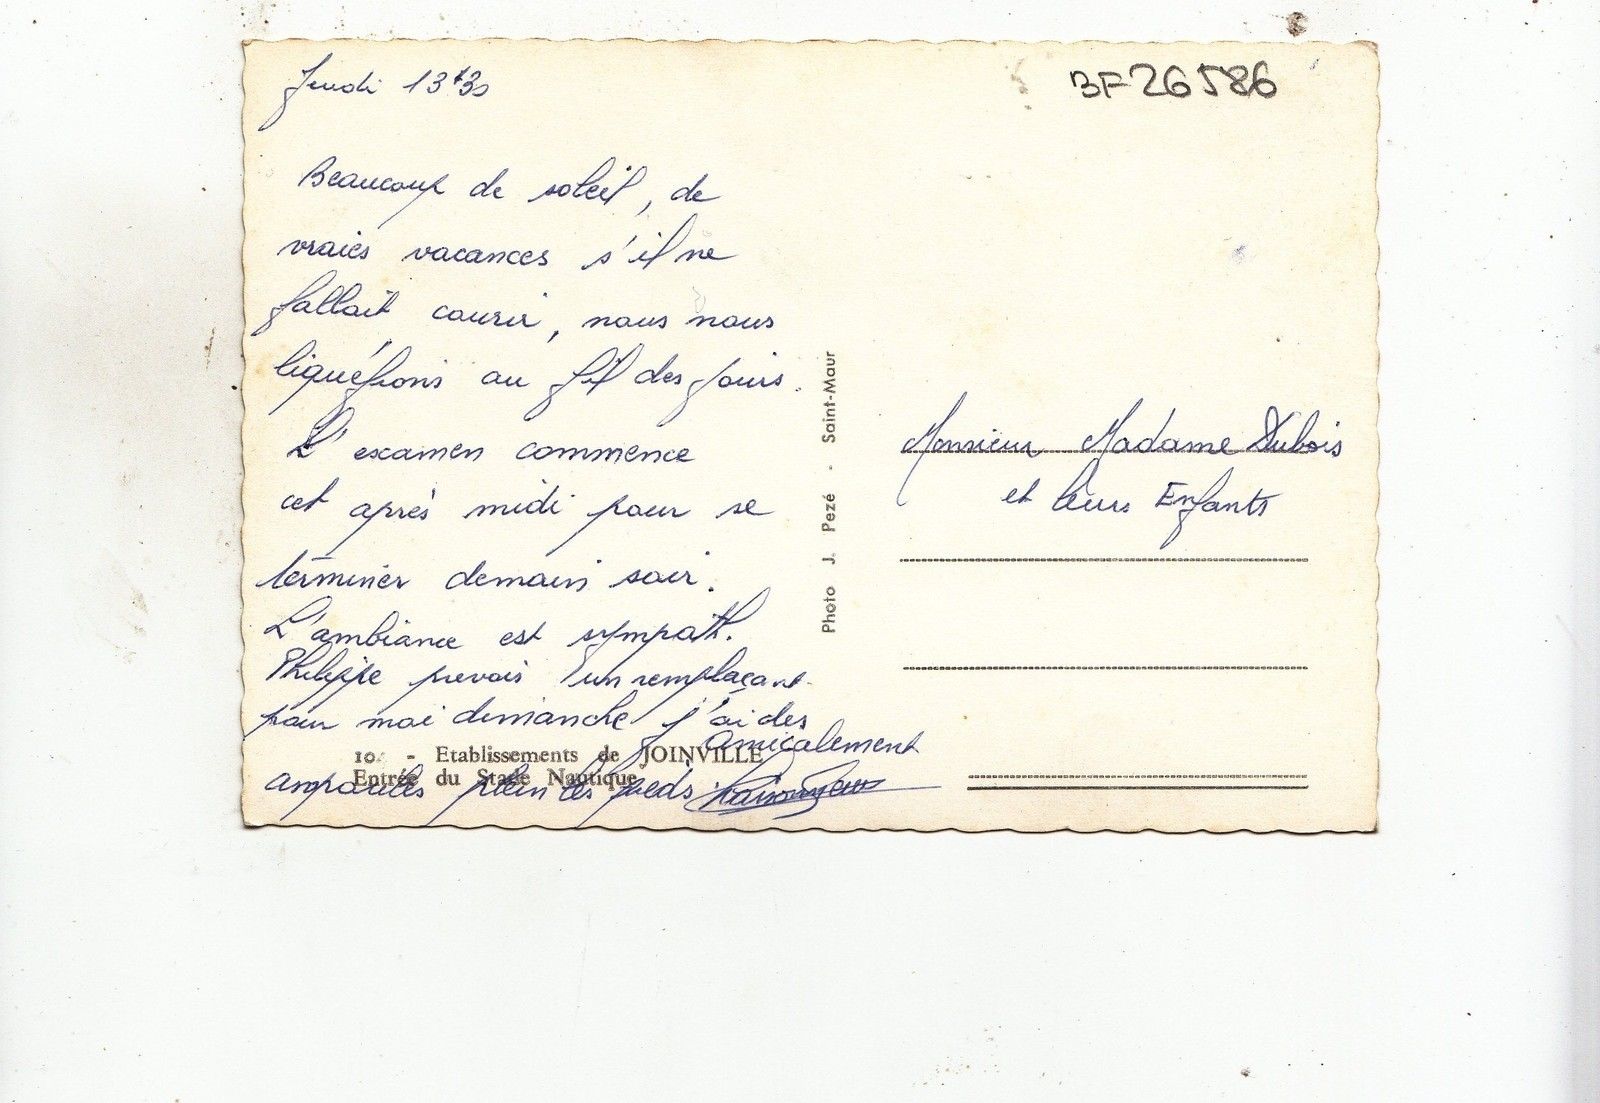 Jeudi 13h30
BF26586
Beaucoup de soleil, de
vraies vacances s'il ne
fallait courir, nous nous
liquéfions au fil des jours.
L'examen commence
cet après midi pour se
terminer demain soir.
L'ambiance est sympath.
Philippe prevois un remplaçant
pour moi dimanche j'ai des
ampoules plein les pieds.
Amicalement
10 - Etablissements de JOINVILLE
Entrée du Stade Nautique
Photo J. Pezé - Saint-Maur
Monsieur Madame Dubois
et leurs Enfants